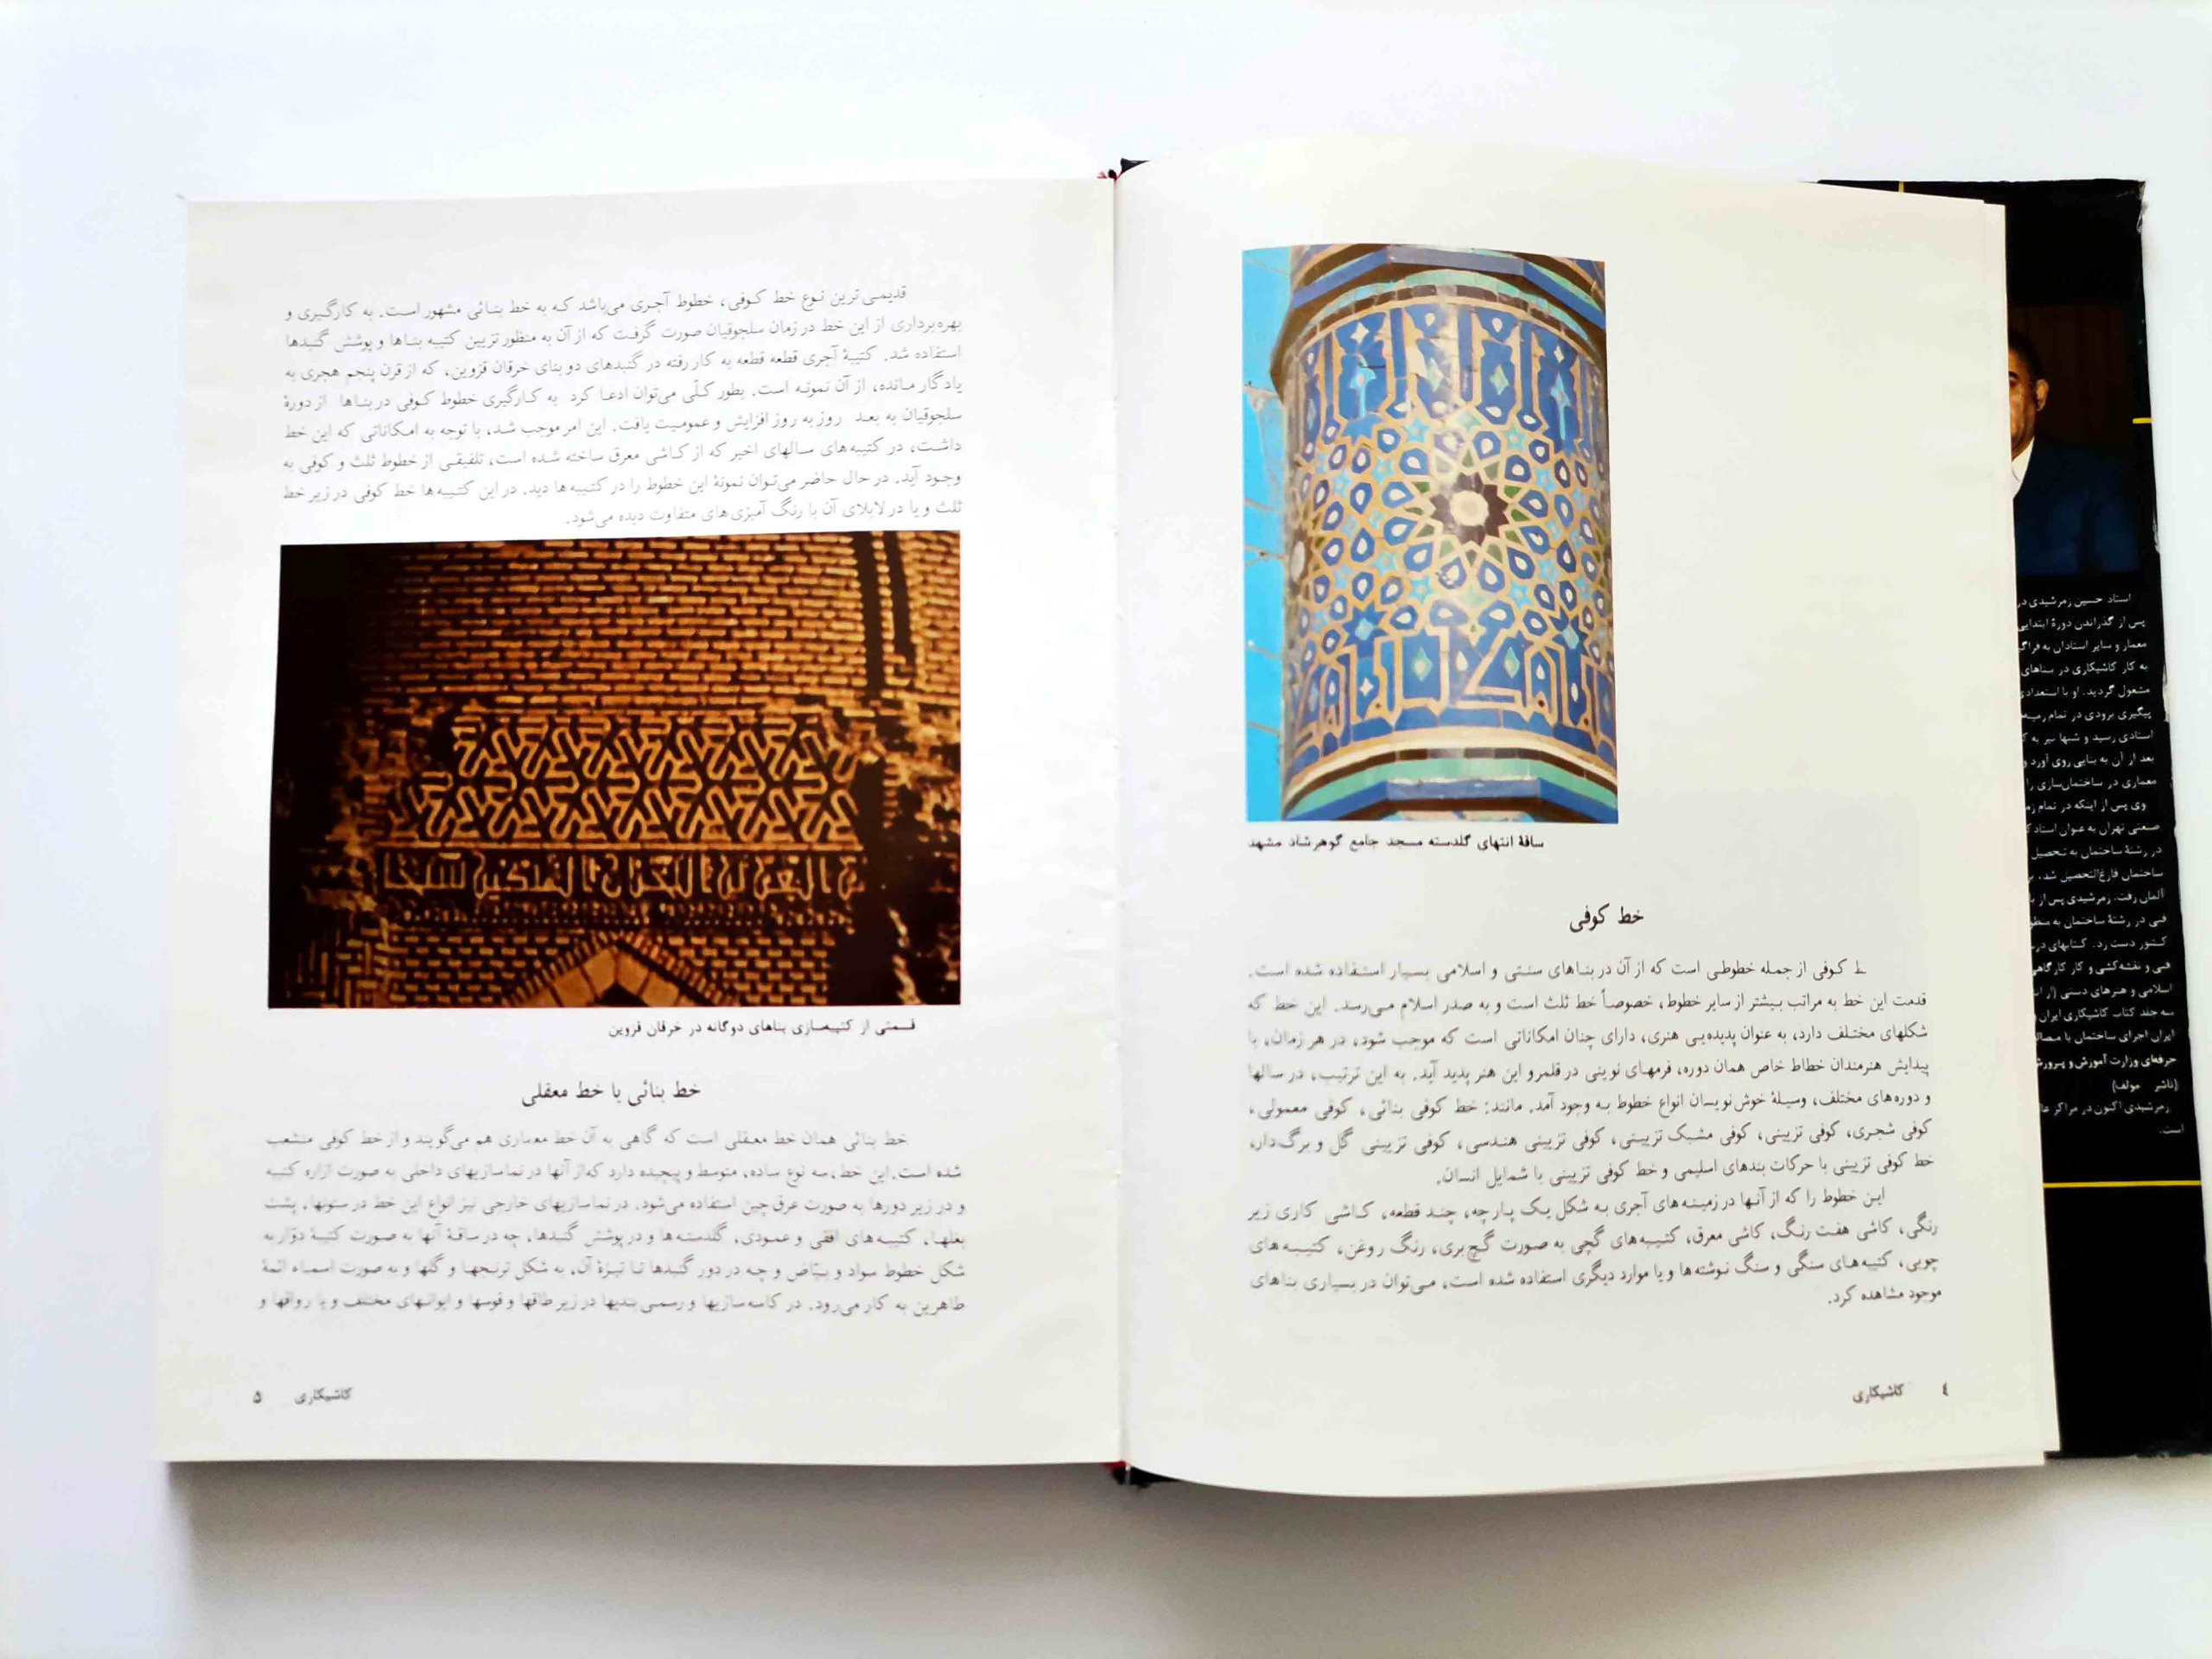 ساقهٔ انتهای گلدسته مسجد جامع گوهرشاد مشهد
خط کوفی
ط کوفی از جمله خطوطی است که از آن در بناهای سنتی و اسلامی بسیار استفاده شده است.
قدمت این خط به مراتب بیشتر از سایر خطوط، خصوصاً خط ثلث است و به صدر اسلام می‌رسد. این خط که
شکلهای مختلف دارد، به عنوان پدیده‌یی هنری، دارای چنان امکاناتی است که موجب شود، در هر زمان، با
پیدایش هنرمندان خطاط خاص همان دوره، فرمهای نوینی در قلمرو این هنر پدید آید. به این ترتیب، در سالها
و دوره‌های مختلف، وسیلهٔ خوش‌نویسان انواع خطوط به وجود آمد. مانند: خط کوفی بنائی، کوفی معمولی،
کوفی شجری، کوفی تزیینی، کوفی مشبک تزیینی، کوفی تزیینی هندسی، کوفی تزیینی گل و برگ‌دار،
خط کوفی تزیینی با حرکات بندهای اسلیمی و خط کوفی تزیینی با شمایل انسان.
این خطوط را که از آنها در زمینه‌های آجری به شکل یک پارچه، چند قطعه، کاشی کاری زیر
رنگی، کاشی هفت رنگ، کاشی معرق، کتیبه‌های گچی به صورت گچ‌بری، رنگ روغن، کتیبه‌های
چوبی، کتیبه‌های سنگی و سنگ نوشته‌ها و یا موارد دیگری استفاده شده است، می‌توان در بسیاری بناهای
موجود مشاهده کرد.
٤ کاشیکاری
قدیمی ترین نوع خط کوفی، خطوط آجری می‌باشد که به خط بنائی مشهور است. به کارگیری و
بهره‌برداری از این خط در زمان سلجوقیان صورت گرفت که از آن به منظور تزیین کتیبه بناها و پوشش گنبدها
استفاده شد. کتیبهٔ آجری قطعه قطعه به کار رفته در گنبدهای دو بنای خرقان قزوین، که از قرن پنجم هجری به
یادگار مانده، از آن نمونه است. بطور کلّی می‌توان ادعا کرد به کارگیری خطوط کوفی در بناها از دورهٔ
سلجوقیان به بعد روز به روز افزایش و عمومیت یافت. این امر موجب شد، با توجه به امکاناتی که این خط
داشت، در کتیبه‌های سالهای اخیر که از کاشی معرق ساخته شده است، تلفیقی از خطوط ثلث و کوفی به
وجود آید. در حال حاضر می‌توان نمونهٔ این خطوط را در کتیبه‌ها دید. در این کتیبه‌ها خط کوفی در زیر خط
ثلث و یا در لابلای آن با رنگ آمیزی‌های متفاوت دیده می‌شود.
قسمتی از کتیبه‌سازی بناهای دوگانه در خرقان قزوین
خط بنائی یا خط معقلی
خط بنائی همان خط معقلی است که گاهی به آن خط معماری هم می‌گویند و از خط کوفی منشعب
شده است. این خط، سه نوع ساده، متوسط و پیچیده دارد که از آنها در نماسازیهای داخلی به صورت ازاره کتیبه
و در زیر دورها به صورت عرق چین استفاده می‌شود. در نماسازیهای خارجی نیز انواع این خط در ستونها، پشت
بغلها، کتیبه‌های افقی و عمودی، گلدسته‌ها و در پوشش گنبدها، چه در ساقهٔ آنها به صورت کتیبهٔ دوّار به
شکل خطوط سواد و بیّاض و چه در دور گنبدها تا تیزهٔ آن، به شکل ترنجها و گلها و به صورت اسماء ائمهٔ
طاهرین به کار می‌رود. در کاسه سازیها و رسمی بندیها در زیر طاقها و قوسها و ایوانهای مختلف و یا رواقها و
کاشیکاری ۵
استاد حسین زمرشیدی در
پس از گذراندن دورهٔ ابتدایی
معمار و سایر استادان به فراگ
به کار کاشیکاری در بناهای
مشغول گردید. او با استعدادی
پیگیری بزودی در تمام زمینه
استادی رسید و شبها نیز به ک
بعد از آن به بنایی روی آورد و
معماری در ساختمان‌سازی را
وی پس از اینکه در تمام زم
صنعتی تهران به عنوان استادک
در رشتهٔ ساختمان به تحصیل
ساختمان فارغ‌التحصیل شد.
آلمان رفت. زمرشیدی پس از ب
فنی در رشتهٔ ساختمان به منظو
کشور دست زد. کتابهای در
فنی و نقشه‌کشی و کار کارگاهی
اسلامی و هنرهای دستی
سه جلد کتاب کاشیکاری ایران
ایران اجرای ساختمان با مصال
حرفه‌ای وزارت آموزش و پرورش
(ناشر مولف)
زمرشیدی اکنون در مراکز عا
است.